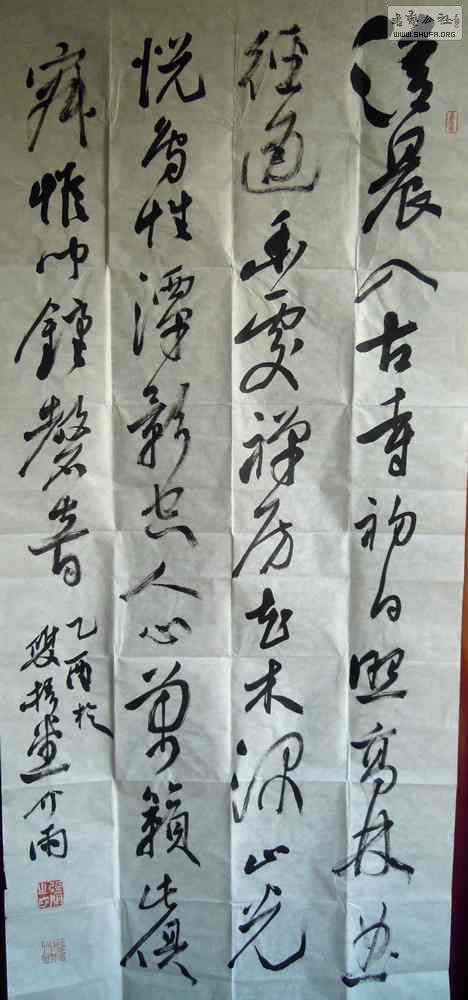 书艺公社
WWW.SHUFA.ORG
清晨入古寺初日照高林曲
徑通幽處禪房花木深山光
悦鳥性潭影空人心萬籟此俱
寂惟聞鐘磬音
乙酉於
雙堂介雨